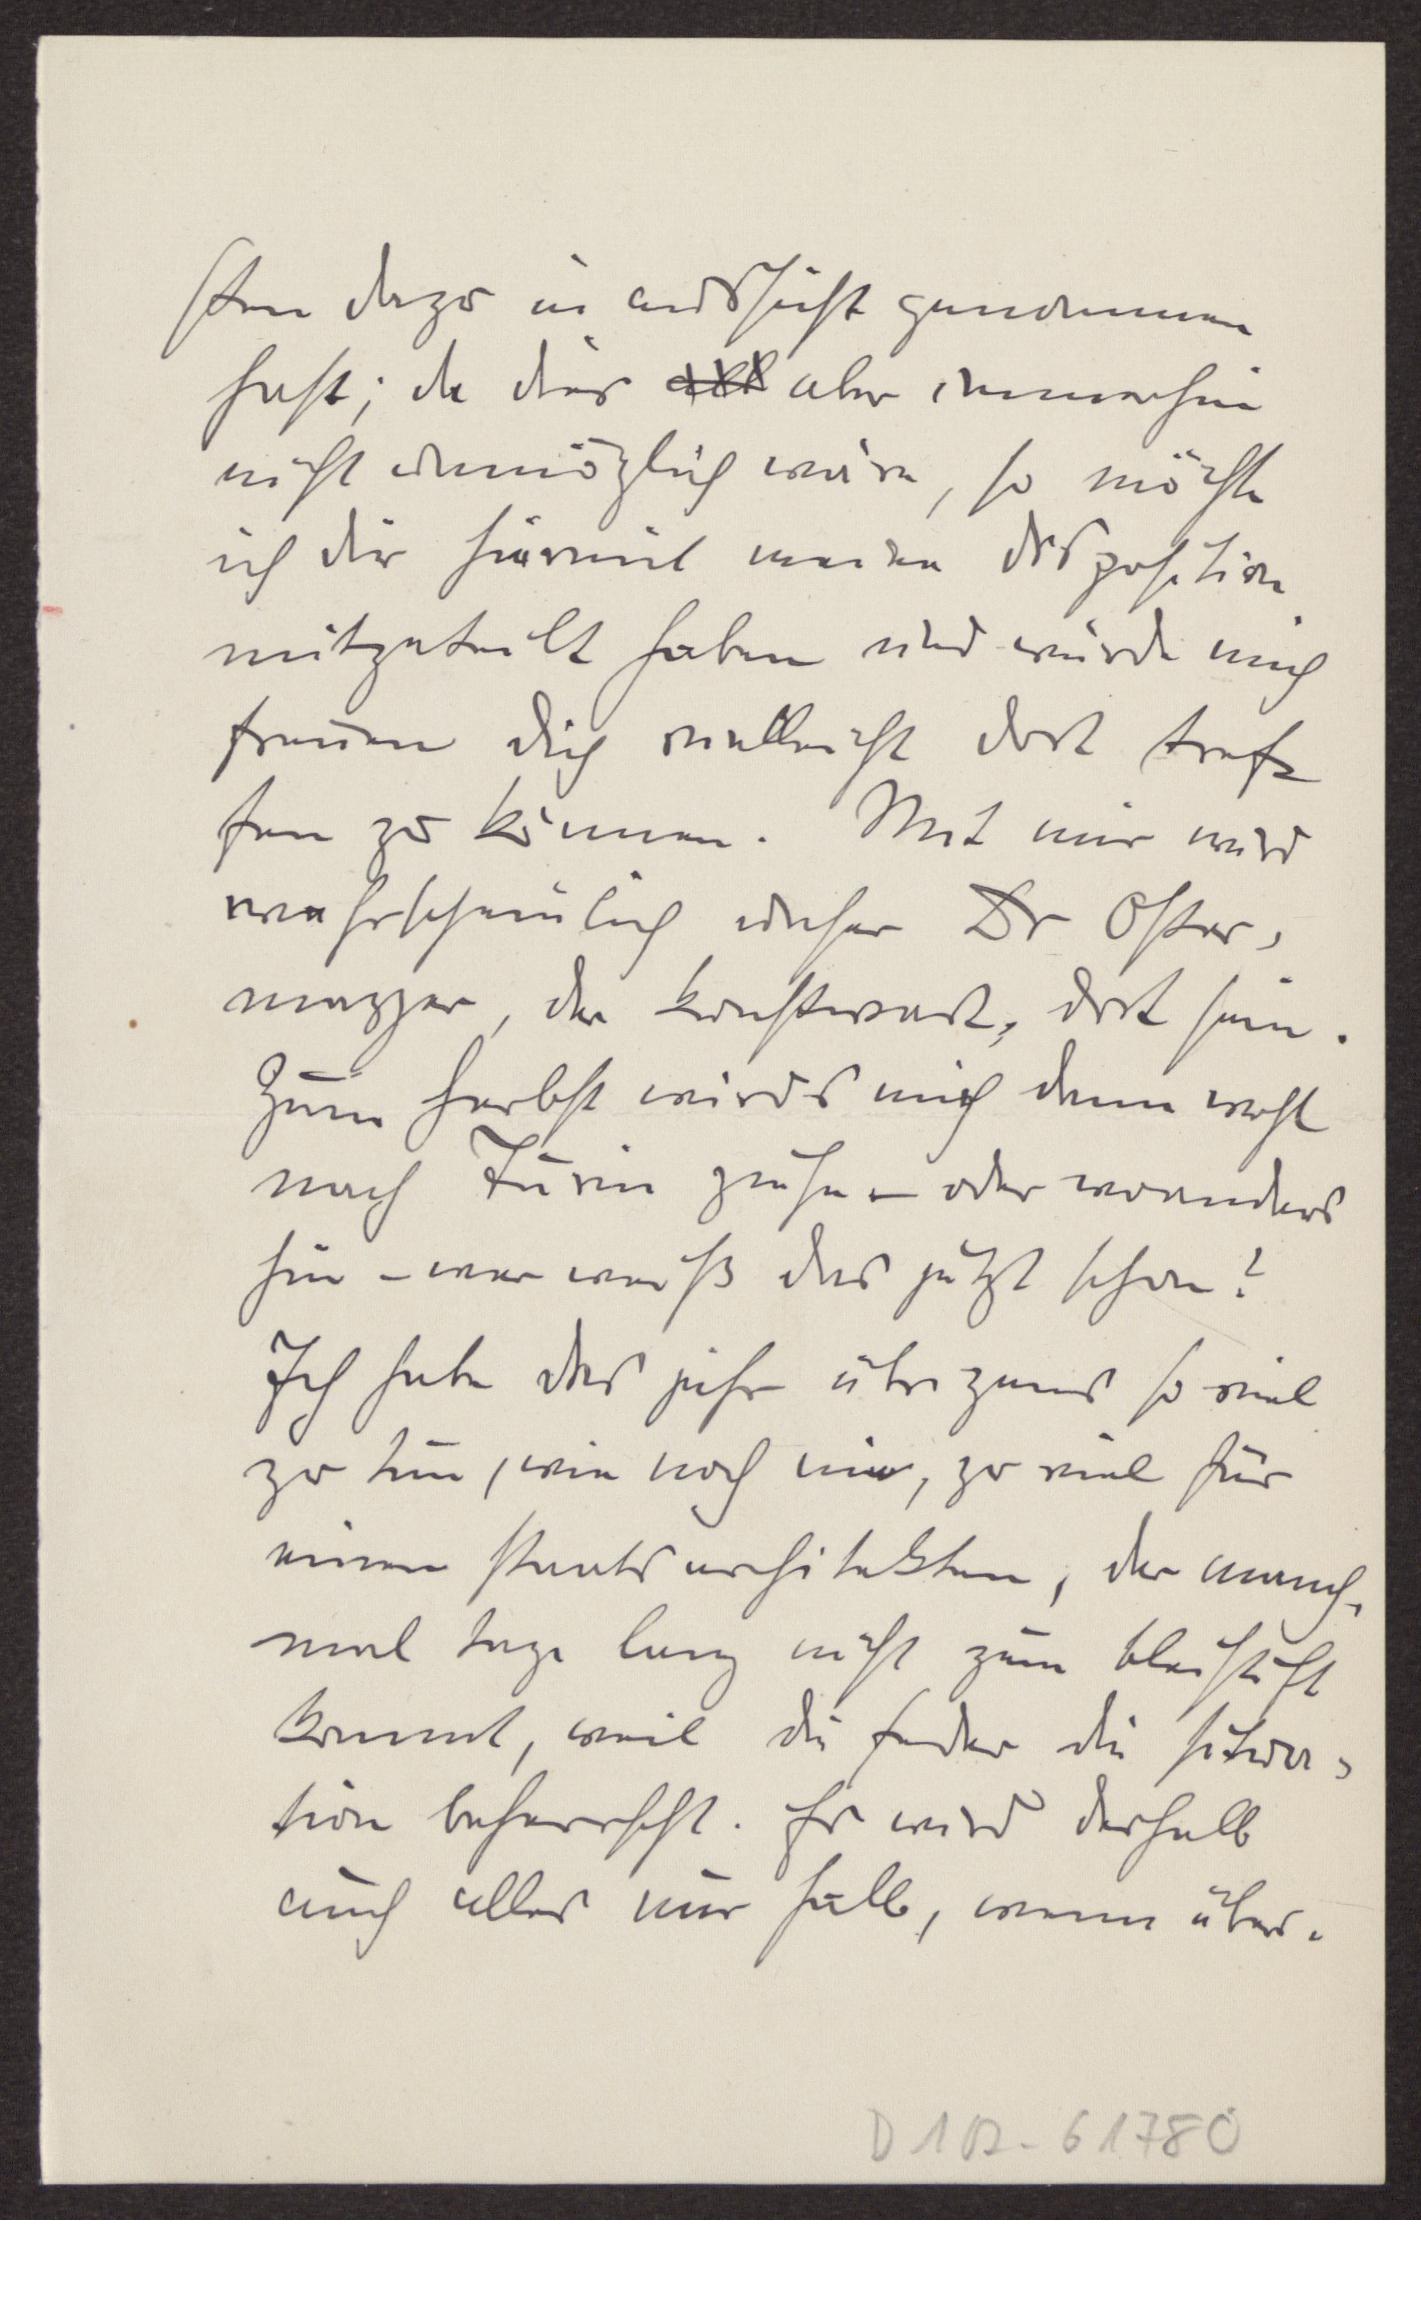 sten dazu in aussicht genommen
hast; da dies all aber immerhin
nicht unmöglich wäre, so möchte
ich dir hiermit meine disposition
mitgeteilt haben und würde mich
freuen dich vielleicht dort tref-
fen zu können. Mit mir wird
wahrscheinlich unser Dr Oster-
mayer, der kunstwart, dort sein.
Zum herbst wirds mich dann wohl
nach Turin ziehen – oder woanders
hin – wer weiß das jetzt schon?
Ich habe das jahr übrigens so viel
zu tun, wie noch nie, zu viel für
einen staatsarchitekten, der manch-
mal tage lang nicht zum bleistift
kommt, weil die feder die situa-
tion beherrscht. Es wird deshalb
auch alles nur halb, wenn über-
D 102-61780